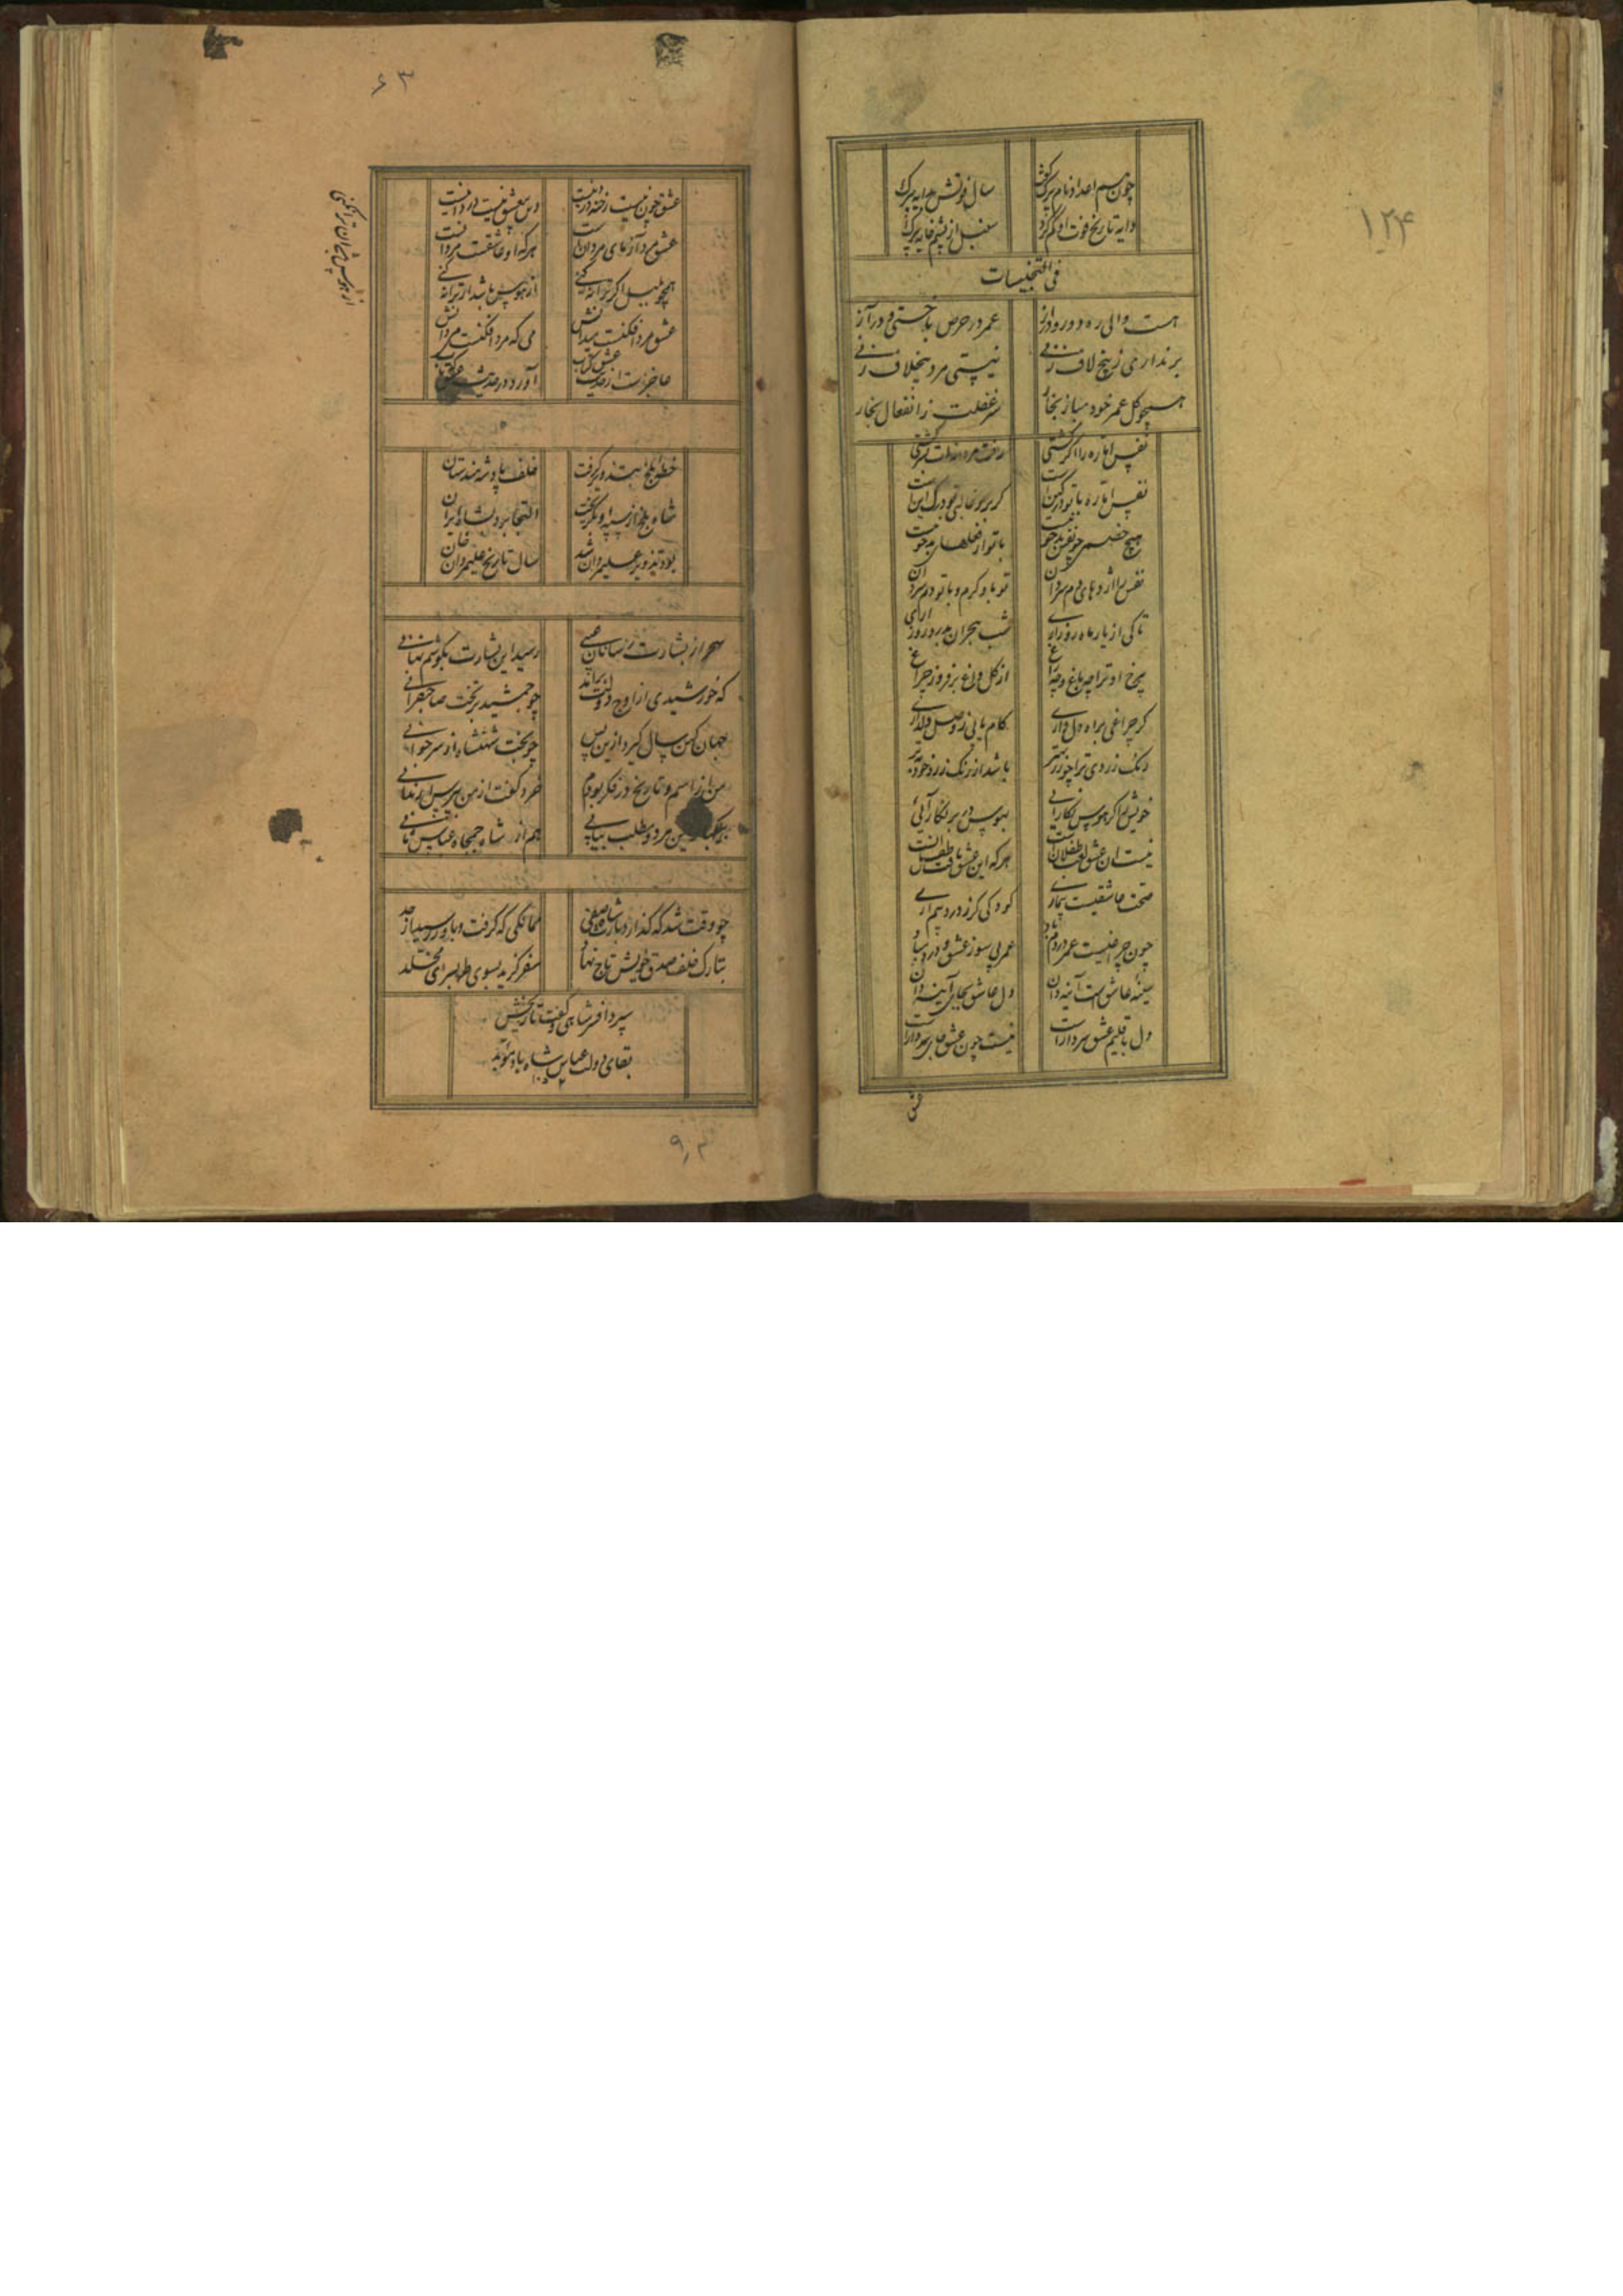 ۱۲۴
سال فوتش بدایه
دایه تاریخ فوت او گم کرد
فی التجنیسات
هست والی ره دور و دراز
عمر در حرص باختی و در آز
بر نداری ز پنج لاف زنی
نیستی مرد بخلاف زنی
همچو گل عمر خود مباز بخار
سر غفلت ز انفعال بخار
نفس اماره را اگر کشتی
نفس اماره با تو در کین است
هیچ خصمی چو نفس بدخو نیست
نفس را اژدهای دم سرد دان
تو باو گرم و با تو دم سرد آن
تا کی از یار ماه رو زاری
شب هجران بدرد روز آری
رخ او ترا چه باغ و چه راغ
از گل داغ بر فروز چراغ
گر چراغی براه دل داری
کام یابی ز وصل دلداری
رنگ زردی ترا چو زر بهتر
باشد از رنگ زرد خود
خویش را گر بهوس نگارائی
بهوس در بر نگار آئی
نیست آن عشق لعب طفلان است
هر که این عشق یافت طفل آنست
صحت عاشقیست بیماری
کودکی گر ز درد بیم آری
چون چراغیست عمر در دم باد
عمر بی سوز عشق و درد مباد
سینه عاشق است آینه دان
دل عاشق بجای آینه دان
دل باقلیم عشق سردار است
نیست چون عشق جای سر دار است
عشق
۶۳
عشق چون نیست رخنه در دینست
درس عشق نیست درد
عشق مرد آزمای مردان است
هر که او عاشقست مرد آنست
همچو بلبل اگر ترانه کنی
از هوس باشد ار ترانه کنی
عشق مرد افکنست میدانش
می که مرد افکنست می دانش
عاجز است از حدیث عشق کتاب
آورد در حدیث عشق که تاب
از هوس بجان ترانکنی
خطه بلخ را بستد و بگرفت
خلف پادشه هندستان
شاه بلخ از سپه او بگریخت
التجا برد بشاه ایران
بود تزویر علیمردان شد
سال تاریخ علیمردان خان
سحر از بشارت رسانان غیبی
رسید این بشارت بگوشم نهانی
که خورشیدی از اوج دولت برآمد
چو جمشید بر تخت صاحبقرانی
جهان کهن سال گیرد ازین پس
چو بخت شهنشاه از سر جوانی
من از اسم و تاریخ در فکر بودم
خرد گفت از من بپرس ار ندانی
مرد و مطلب بیابی
هم از شاه جمجاه عباس ثانی
چو وقت شد که گذارد بارث شاه صفی
ممالکی که گرفت و باو رسید از جد
بتارک خلف صدق خویش تاج نهاد
سفر گزید بسوی طربسرای مخلد
سپرد افسر شاهی و گفت تاریخش
بقای دولت عباس شاه باد مؤبد
۱۰۵۲